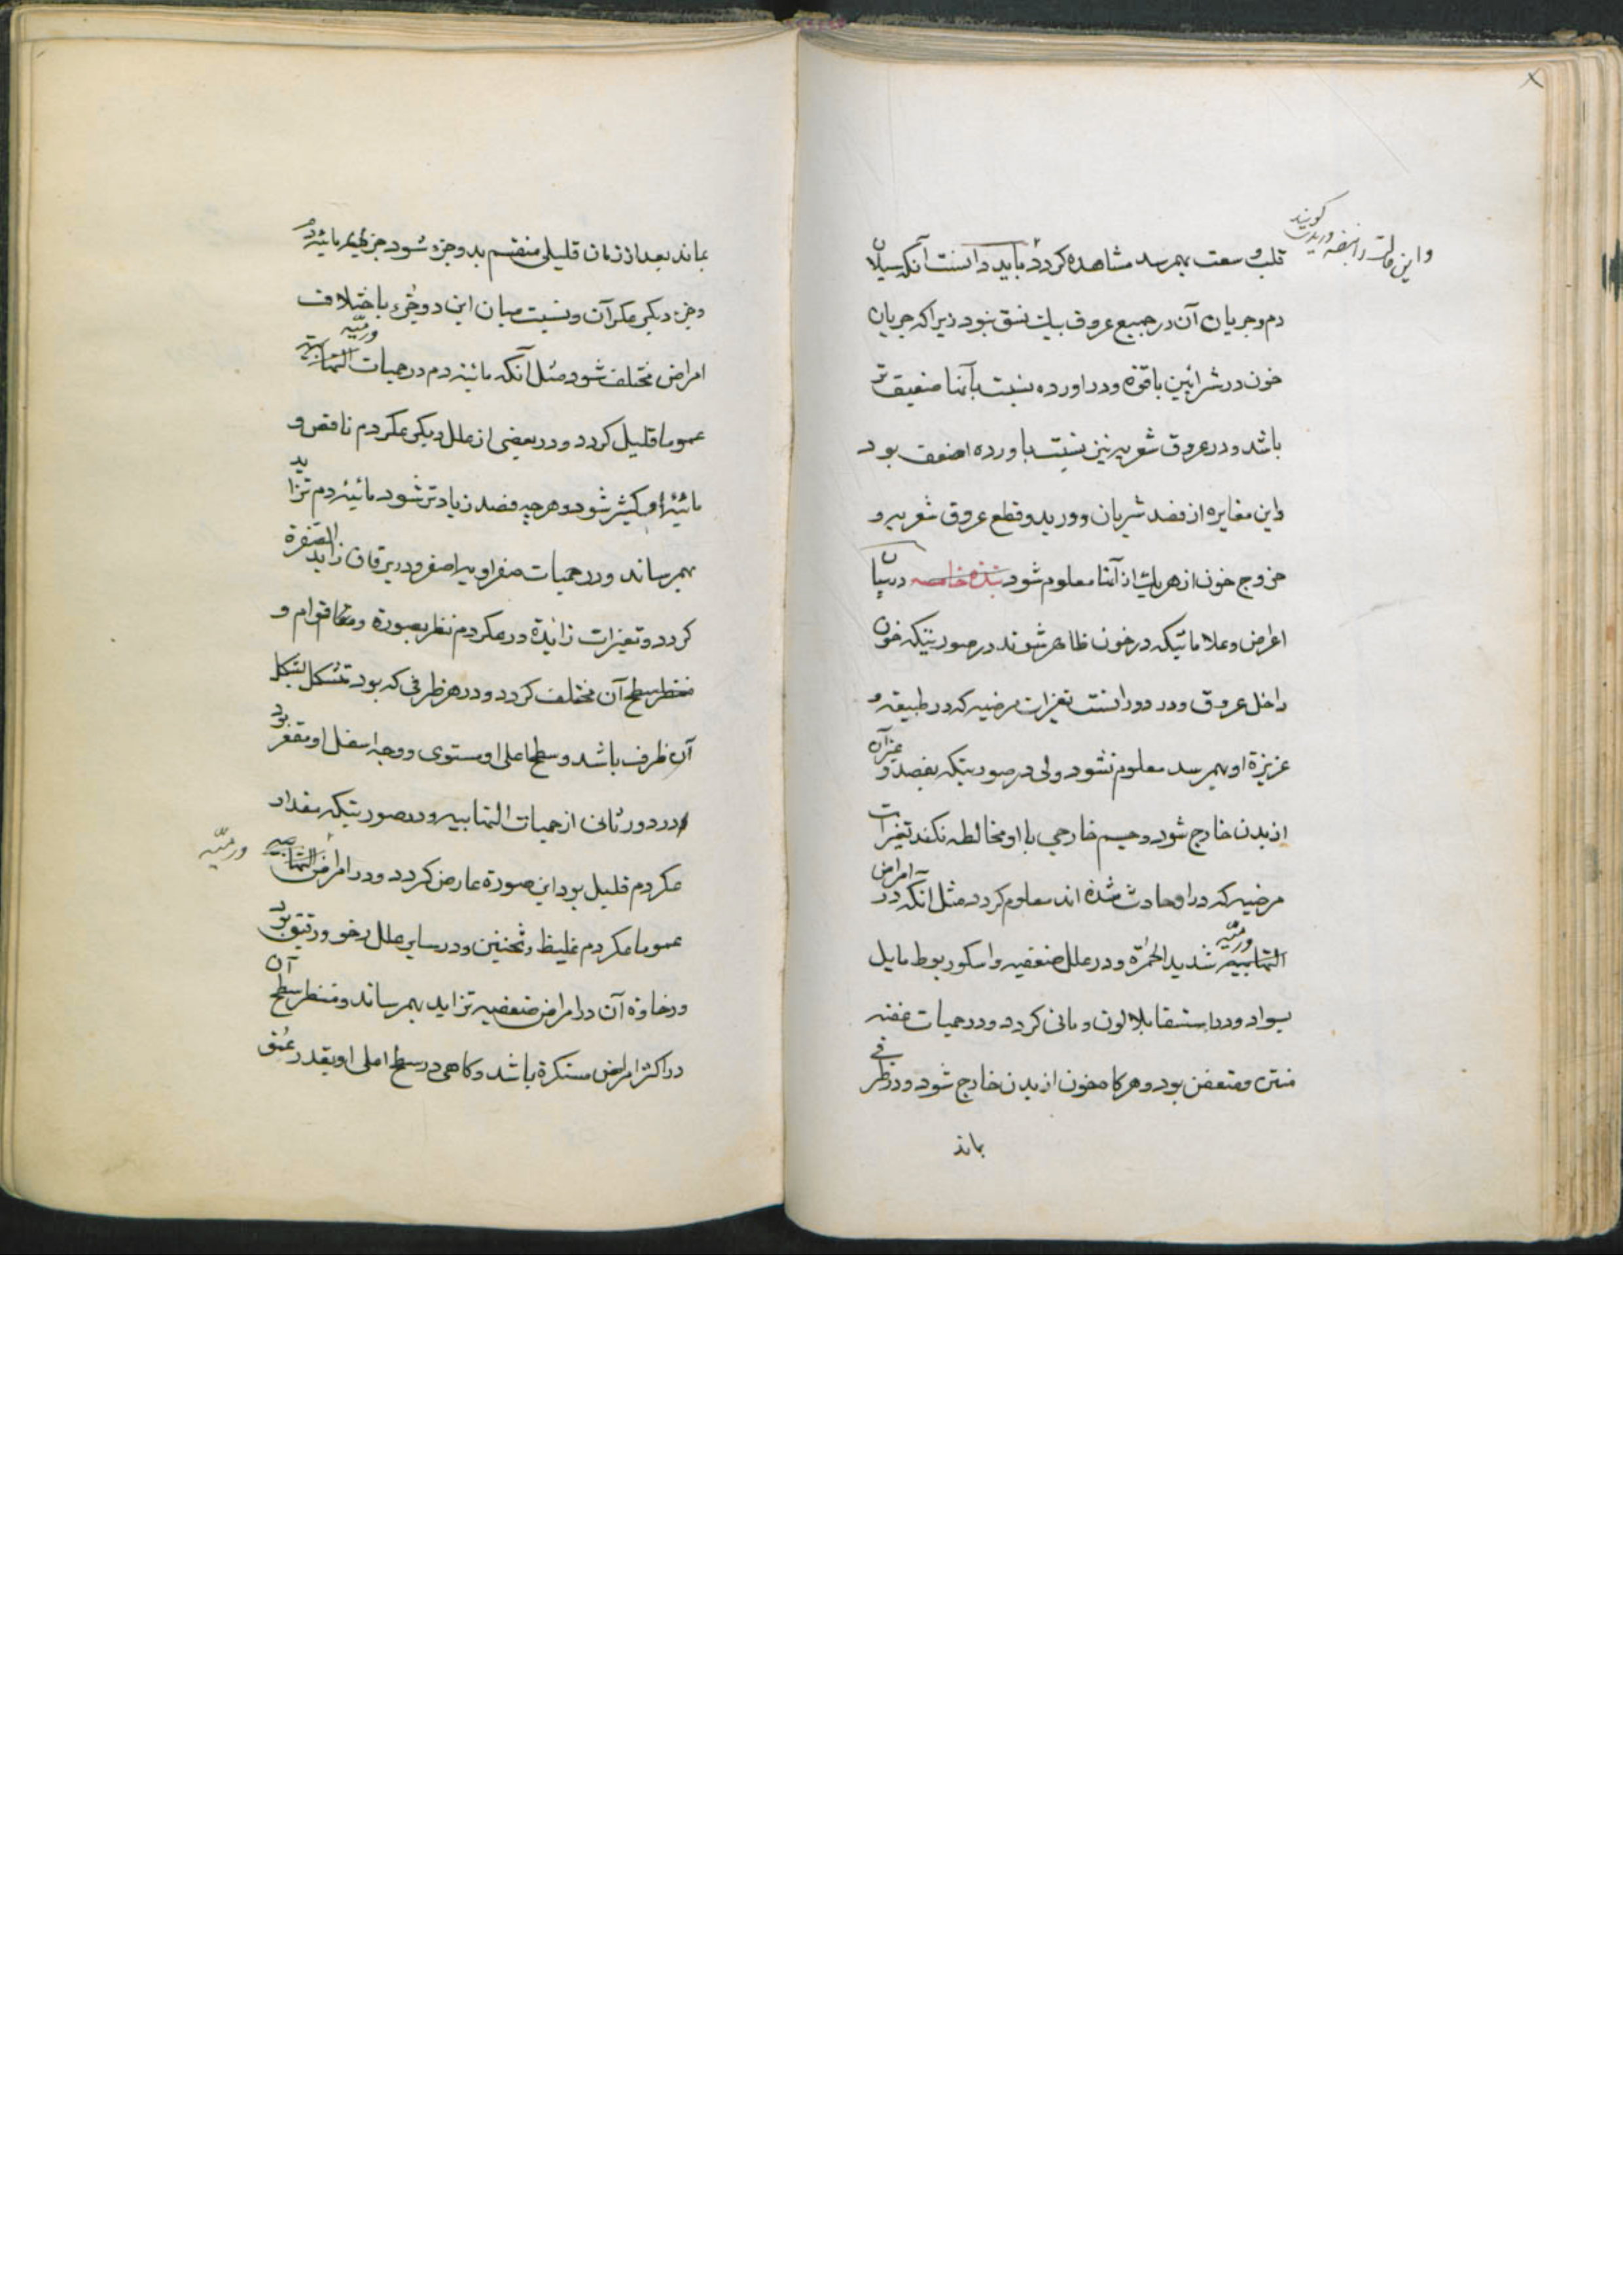 و این حالت را نبضه وریدیه کویند
قلب وسعت بهمرسد مشاهده کردد باید دانست آنکه سیلان
دم و جریان آن در جمیع عروق بیک نسق نبود زیرا که جریان
خون در شرائین با قوة و در اورده نسبت بآنها ضعیف تر
باشد و در عروق شعریه نیز نسبت باورده اضعف بود
و این مغایره از فصد شریان و ورید و قطع عروق شعریه و
خروج خون از هر یک از آنها معلوم شود نبذه خامسه در بیان
اعراض و علاماتیکه در خون ظاهر شوند در صورتیکه خون
داخل عروق و در دورانست تغیرات مرضیه که در طبیعة و
غریزة او بهمرسد معلوم نشود ولی در صورتیکه بفصد و غیر آن
از بدن خارج شود و جسم خارجی با او مخالطه نکند تغیرات
مرضیه که در او حادث شده اند معلوم کردد مثل آنکه در امراض
التهابیه ورمیّه شدید الحمرة و در علل ضعفیه و اسکوربوط مایل
بسواد و در استسقا بلا لون و مائی کردد و در حمیات عفنه
منتن و متعفن بود و هرکاه خون از بدن خارج شود و در ظرفی
بماند
بماند بعد از زمان قلیلی منقسم بدو جزء شود جزء مائیة دم
و جزء دیکر عکر آن و نسبت میان این دو جزء باختلاف
امراض مختلف شود مثل آنکه مائیة دم در حمیات التهابیه ورمیّه
عموما قلیل کردد و در بعضی از علل دیکر عکر دم ناقص و
مائیة او کثیر شود و هر چه فصد زیادتر شود مائیة دم تزاید
بهمرساند و در حمیات صفراویه اصفر و در یرقان زاید الصفرة
کردد و تغیرات زایدة در عکر دم نظر بصورة و قوام و
منظر سطح آن مختلف کردد و در هر ظرفی که بود متشکل بشکل
آن ظرف باشد و سطح اعلی او مستوی و وجه اسفل او مقعر بود
و در دور ثانی از حمیات التهابیه و در صورتیکه مقدار
عکر دم قلیل بود این صورة عارض کردد و در امراض التهابیه
ورمیّه
عموما عکر دم غلیظ و ثخین و در سایر علل رخو و رقیق بود
و رخاوة آن در امراض ضعفیه تزاید بهمرساند و منظر سطح آن
در اکثر امراض مستکرة باشد و کاهی در سطح اعلی او بقدر عمق